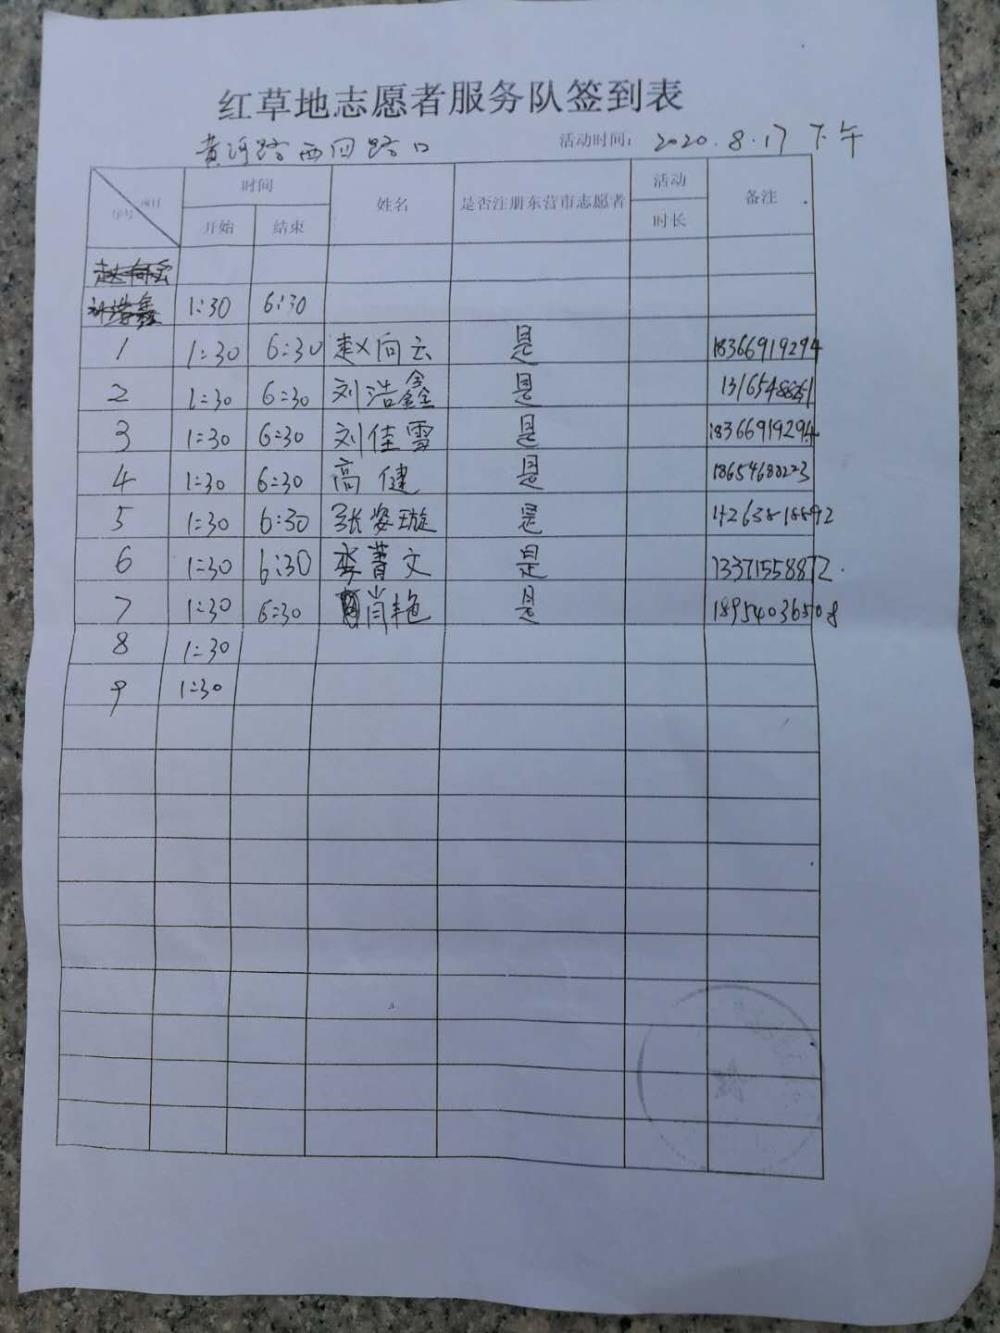 红草地志愿者服务队签到表
黄河路西四路口 活动时间：2020.8.17下午
序号 项目 时间 姓名 是否注册东营市志愿者 活动 备注
开始 结束 时长
赵向云
刘浩鑫 1:30 6:30
1 1:30 6:30 赵向云 是 18366919294
2 1:30 6:30 刘浩鑫 是
3 1:30 6:30 刘佳雪 是 18366919294
4 1:30 6:30 高健 是 18654680223
5 1:30 6:30 张姿璇 是
6 1:30 6:30 李菁文 是 13371558872
7 1:30 6:30 肖艳 是 18954036508
8 1:30
9 1:30